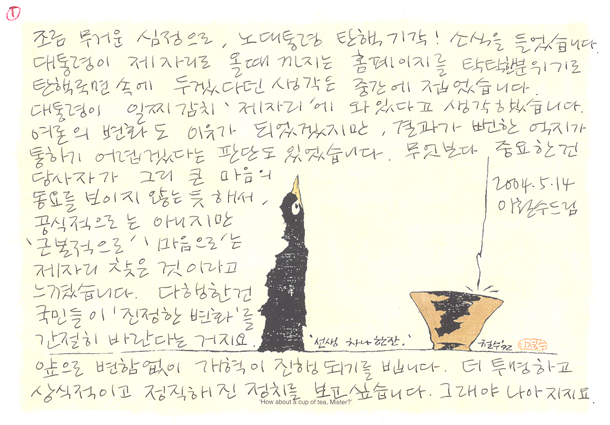 조금 무거운 심정으로, 노대통령 탄핵기각! 소식을 들었습니다.
대통령이 제자리로 올때까지는 홈페이지를 탁탁한분위기로
탄핵국면속에 두겠다던 생각은 중간에 접었습니다.
대통령이 일찌감치 '제자리'에 와있다고 생각했습니다.
여론의 변화도 이유가 되었겠지만, 결과가 뻔한 억지가
통하기 어렵겠다는 판단도 있었습니다. 무엇보다 중요한건
당사자가 그리 큰 마음의
동요를 보이지 않는듯 해서,
공식적으로는 아니지만
'근본적으로' '마음으로'는
제자리 찾은 것이라고
느꼈습니다. 다행한건
국민들이 '진정한 변화'를
간절히 바란다는 거지요.
2004.5.14
이철수드림
'선생 차나 한잔.'
철수92
앞으로 변함없이 개혁이 진행되기를 빕니다. 더 투명하고
상식적이고 정직해진 정치를 보고 싶습니다. 그래야 나아지지요.
'How about a cup of tea, Mister?'